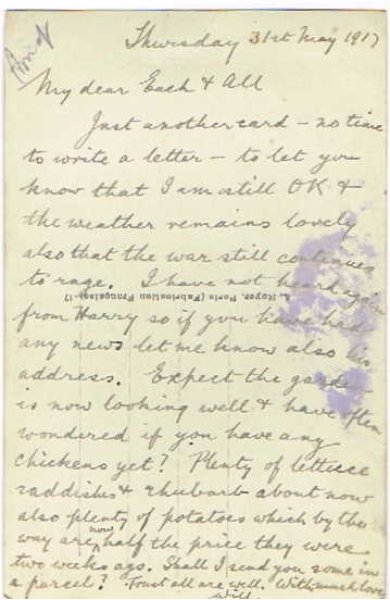 Thursday 31st May 1917
My dear Each & All
Just another card – no time
to write a letter – to let you
know that I am still OK &
the weather remains lovely
also that the war still continues
to rage. I have not heard again
from Harry so if you have had
any news let me know also his
address. Expect the garden
is now looking well & have often
wondered if you have any
chickens yet? Plenty of lettuce
raddishes & rhubarb about now
also plenty of potatoes which by the
way are now half the price they were
two weeks ago. Shall I send you some in
a parcel? Trust all are well. With much love
Will.
Royer, Paris (Fabrication Française)